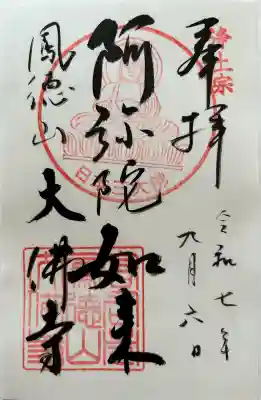 奉拝
浄土宗
令和七年
九月六日
阿弥陀如来
鳳徳山
大佛寺